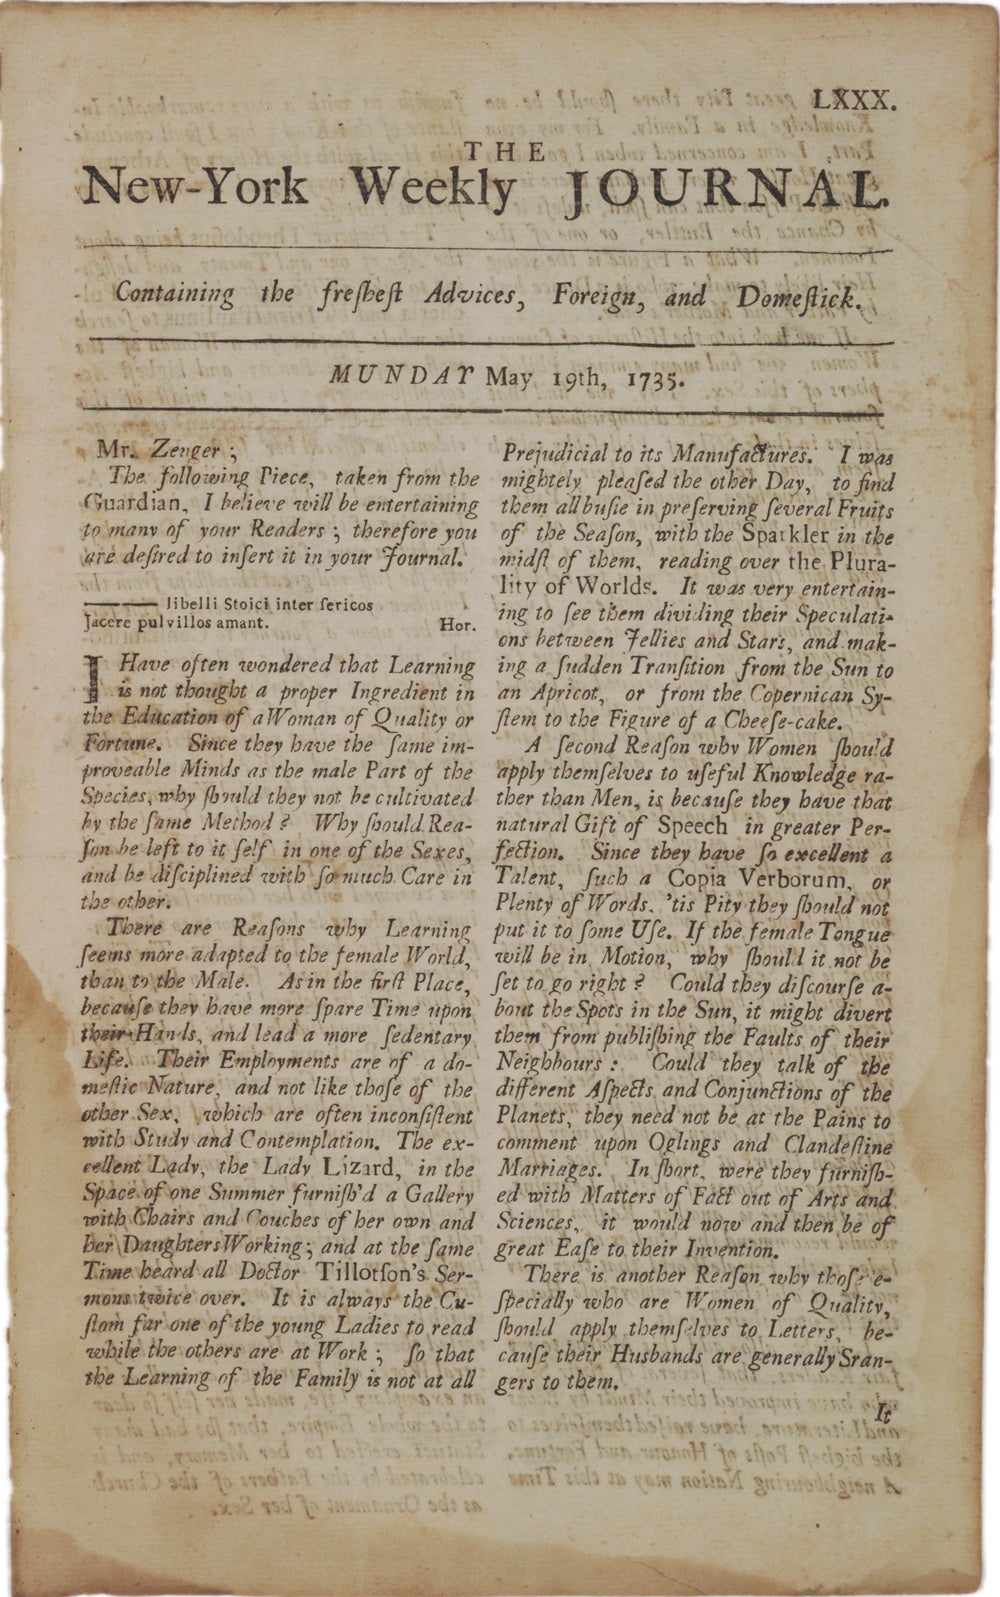 LXXX.
THE
New-York Weekly JOURNAL.
Containing the freſheſt Advices, Foreign, and Domeſtick.
MUNDAY May 19th, 1735.
Mr. Zenger ;
The following Piece, taken from the
Guardian, I believe will be entertaining
to many of your Readers ; therefore you
are deſired to inſert it in your Journal.
——— libelli Stoici inter ſericos
Jacere pulvillos amant. Hor.
I Have often wondered that Learning
is not thought a proper Ingredient in
the Education of a Woman of Quality or
Fortune. Since they have the ſame im-
proveable Minds as the male Part of the
Species, why ſhould they not be cultivated
by the ſame Method ? Why ſhould Rea-
ſon be left to it ſelf in one of the Sexes,
and be diſciplined with ſo much Care in
the other.
There are Reaſons why Learning
ſeems more adapted to the female World,
than to the Male. As in the firſt Place,
becauſe they have more ſpare Time upon
their Hands, and lead a more ſedentary
Life. Their Employments are of a do-
meſtic Nature, and not like thoſe of the
other Sex, which are often inconſiſtent
with Study and Contemplation. The ex-
cellent Lady, the Lady Lizard, in the
Space of one Summer furniſh'd a Gallery
with Chairs and Couches of her own and
her Daughters Working ; and at the ſame
Time heard all Doctor Tillotſon's Ser-
mons twice over. It is always the Cu-
ſtom far one of the young Ladies to read
while the others are at Work ; ſo that
the Learning of the Family is not at all
Prejudicial to its Manufactures. I was
mightely pleaſed the other Day, to find
them all buſie in preſerving ſeveral Fruits
of the Seaſon, with the Sparkler in the
midſt of them, reading over the Plura-
lity of Worlds. It was very entertain-
ing to ſee them dividing their Speculati-
ons between Jellies and Stars, and mak-
ing a ſudden Tranſition from the Sun to
an Apricot, or from the Copernican Sy-
ſtem to the Figure of a Cheeſe-cake.
A ſecond Reaſon why Women ſhould
apply themſelves to uſeful Knowledge ra-
ther than Men, is becauſe they have that
natural Gift of Speech in greater Per-
fection. Since they have ſo excellent a
Talent, ſuch a Copia Verborum, or
Plenty of Words, 'tis Pity they ſhould not
put it to ſome Uſe. If the female Tongue
will be in Motion, why ſhould it not be
ſet to go right ? Could they diſcourſe a-
bout the Spots in the Sun, it might divert
them from publiſhing the Faults of their
Neighbours : Could they talk of the
different Aſpects and Conjunctions of the
Planets, they need not be at the Pains to
comment upon Oglings and Clandeſtine
Marriages. In ſhort, were they furniſh-
ed with Matters of Fact out of Arts and
Sciences, it would now and then be of
great Eaſe to their Invention.
There is another Reaſon why thoſe e-
ſpecially who are Women of Quality,
ſhould apply themſelves to Letters, be-
cauſe their Husbands are generally Sran-
gers to them.
It